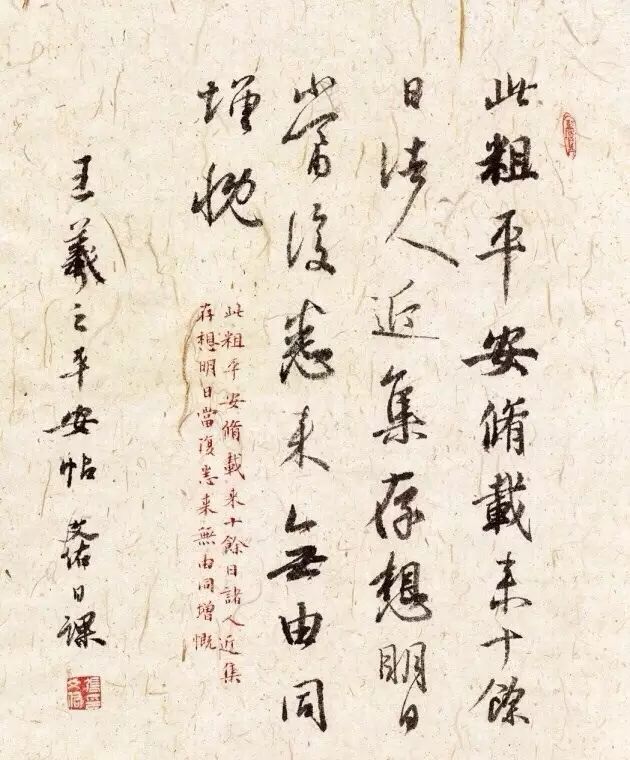 此粗平安脩載来十餘
日諸人近集存想明日
當復悉来無由同
增慨
此粗平安脩載来十餘日諸人近集
存想明日當復悉来無由同增慨
王羲之平安帖 日课